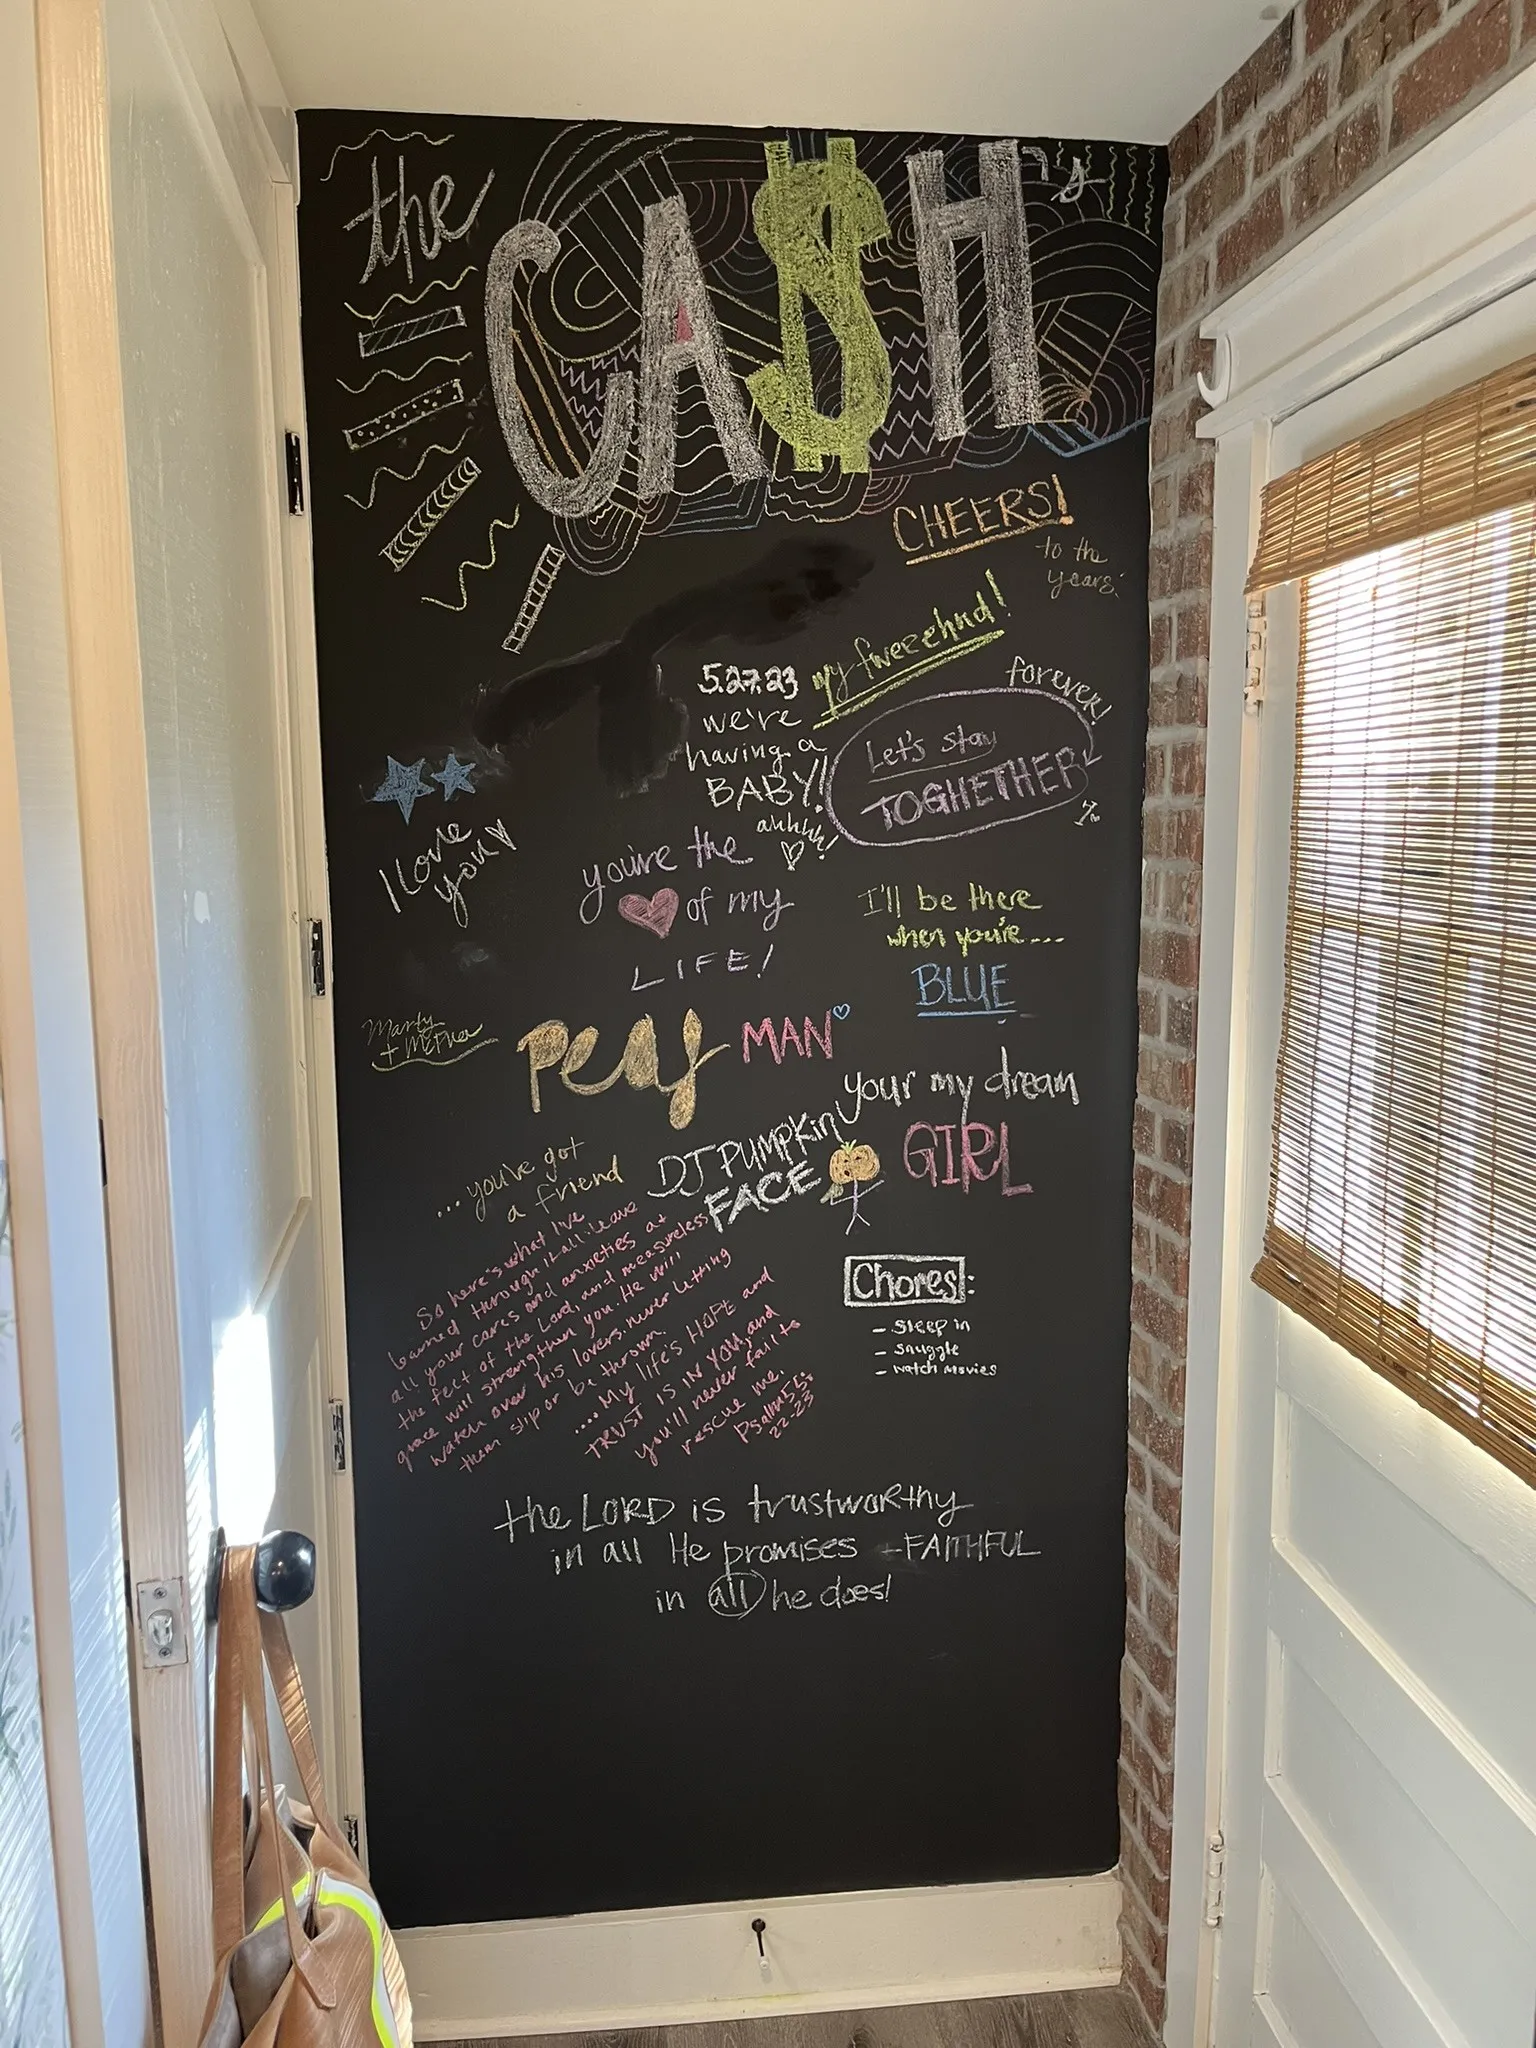 the
CA$H's
CHEERS!
to the
years!
my fweeehnd!
5.27.23
we're
having a
BABY!
ahhhh!
forever!
Let's stay
TOGHETHER
I love
you
you're the
of my
LIFE!
I'll be there
when you're...
BLUE
Marty
+ McPhee
MAN
your my dream
GIRL
DJ PUMPKin
FACE
...you've got
a friend
So here's what I've
learned through it all: leave
all your cares and anxieties at
the feet of the Lord, and measureless
grace will strengthen you. He will
watch over his lovers, never letting
them slip or be thrown.
....My life's HOPE and
TRUST IS IN YOU, and
you'll never fail to
rescue me.
Psalm 55:
22-23
Chores:
- Sleep in
- snuggle
- watch movies
the LORD is trustworthy
in all He promises + FAITHFUL
in all he does!